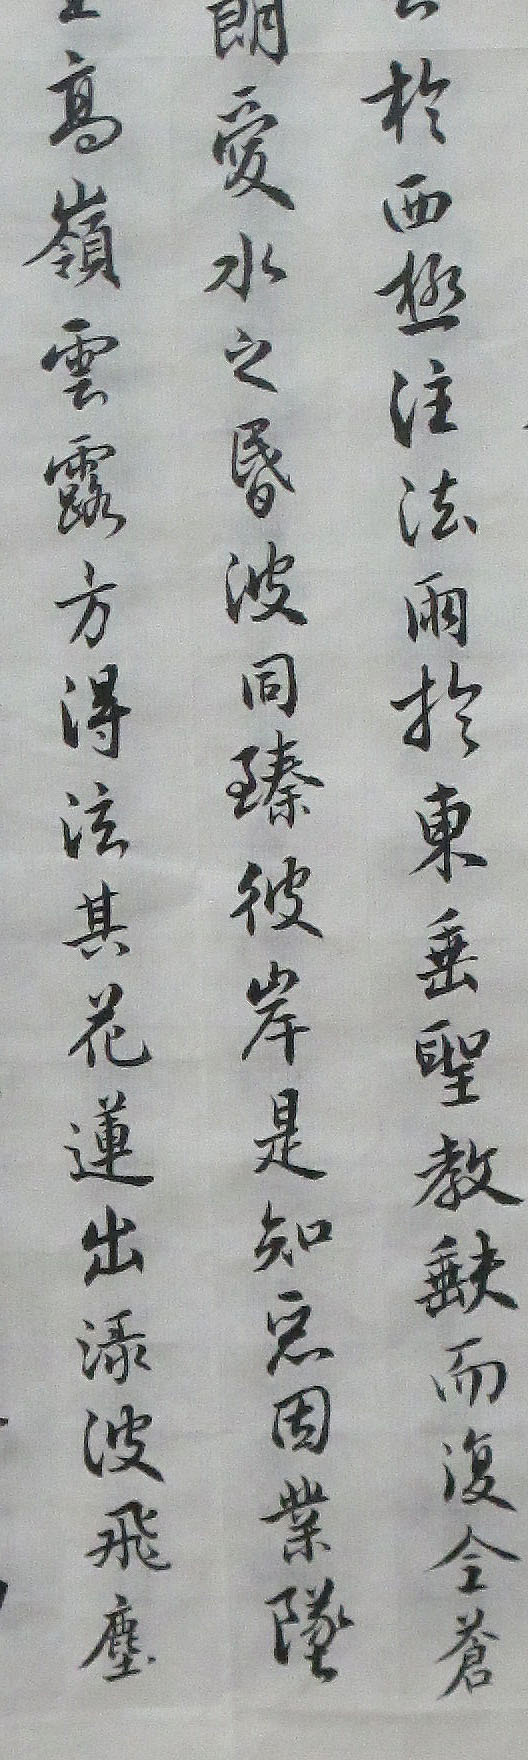 於西極注法雨於東垂聖教缺而復全蒼
朗愛水之昏波同臻彼岸是知惡因業墜
高嶺雲露方得泫其花蓮出淥波飛塵